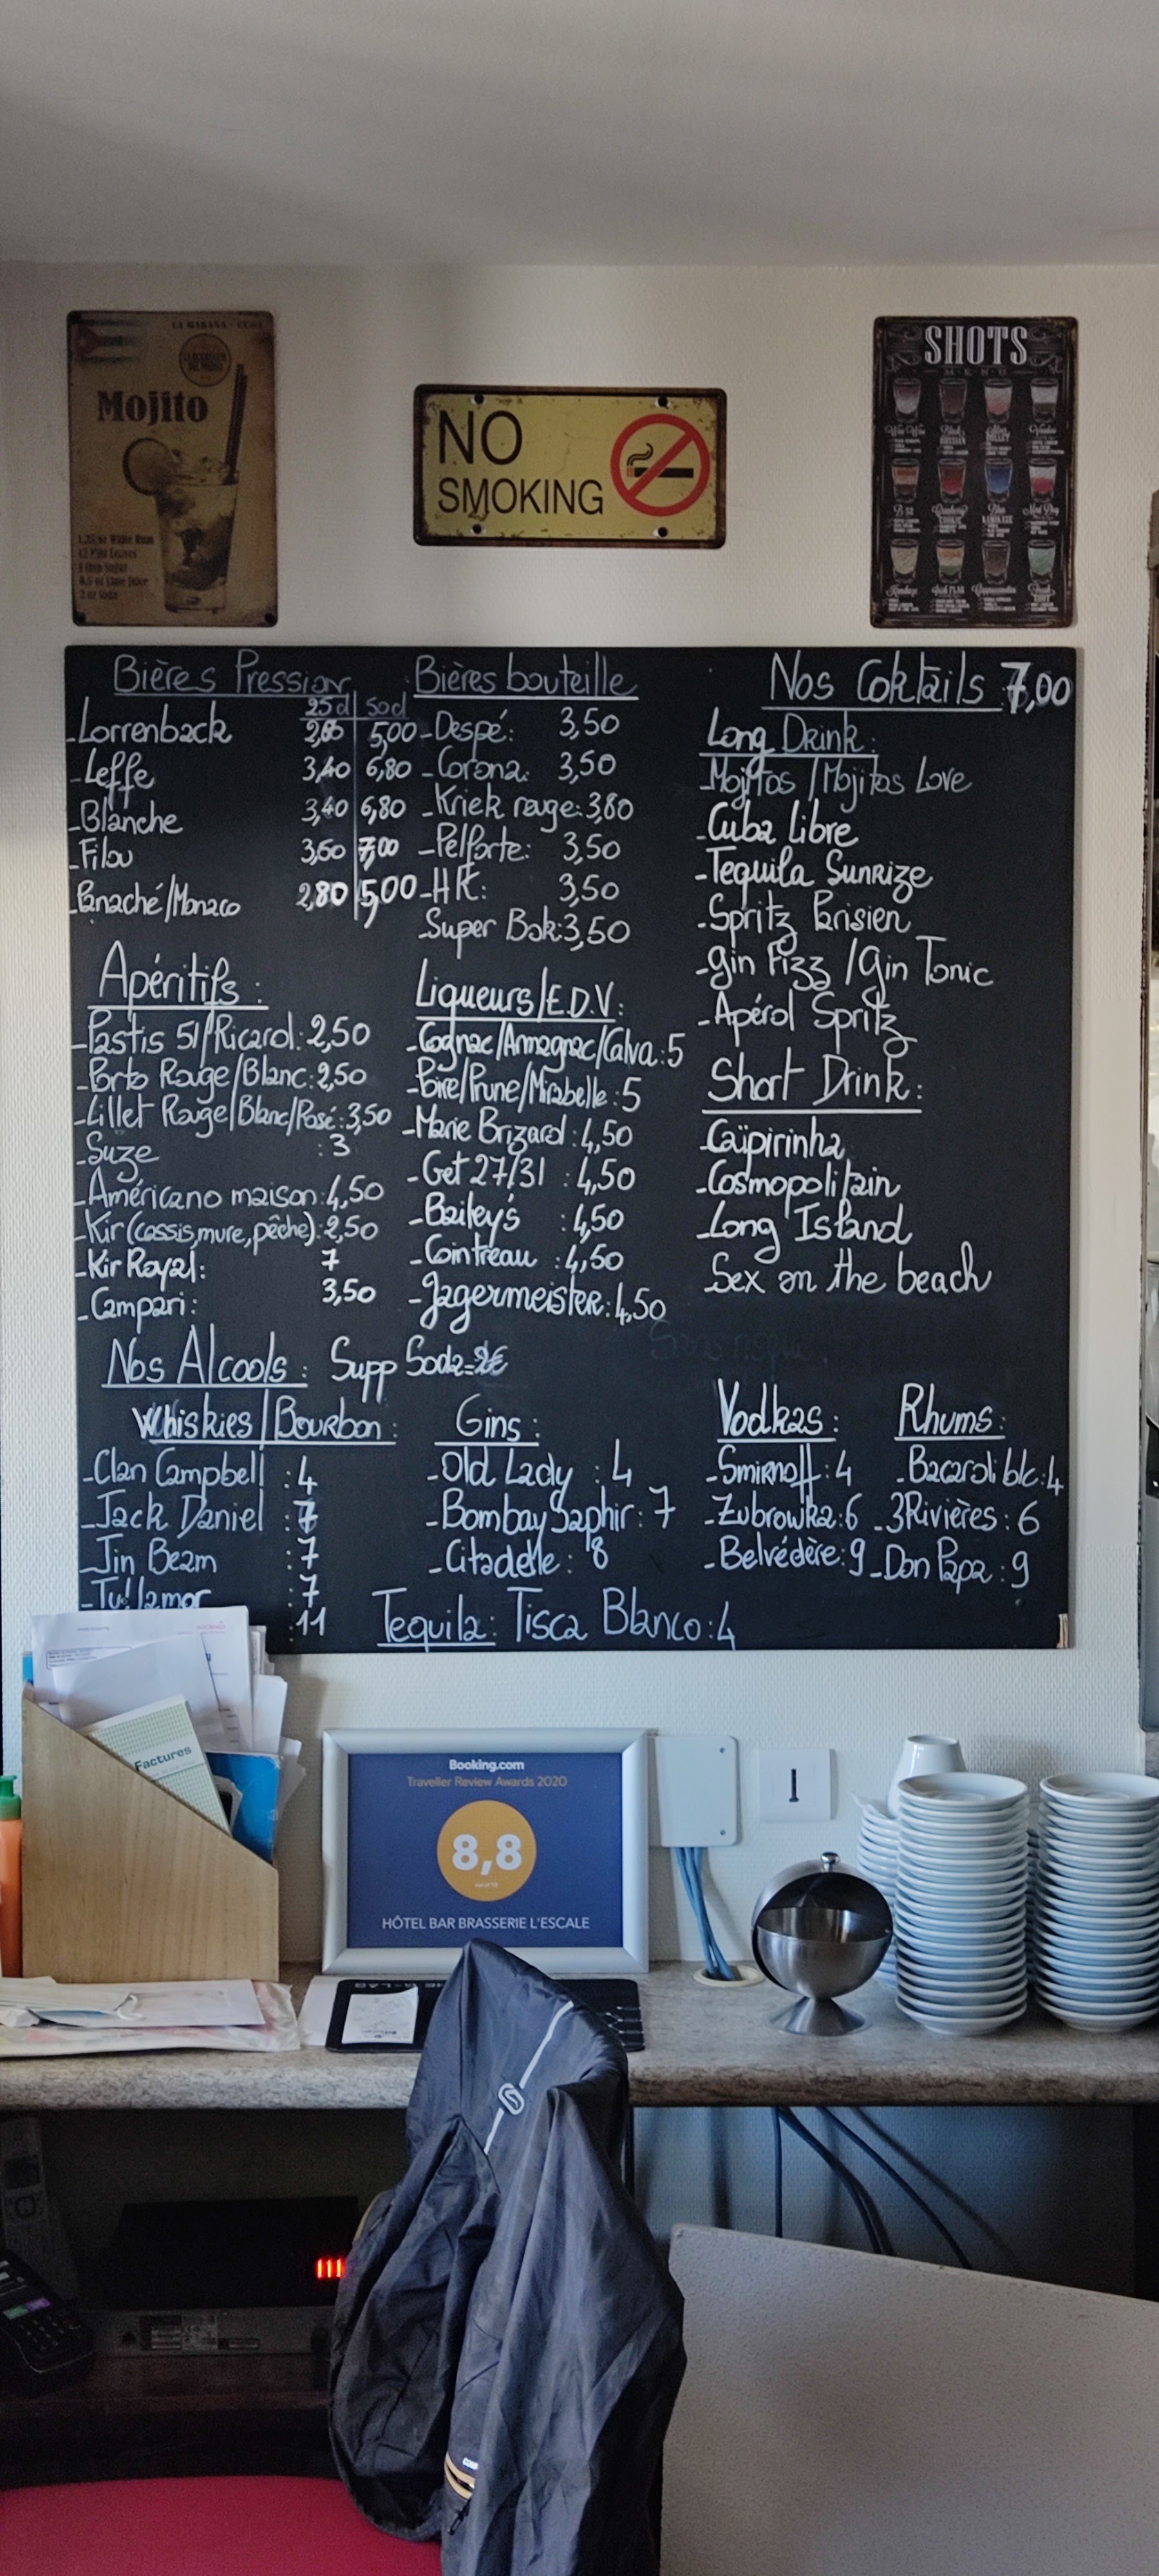 LA HABANA - CUBA
Mojito
1.25 oz White Rum
12 Mint Leaves
1 tbsp Sugar
0.5 oz Lime Juice
2 oz Soda
NO
SMOKING
SHOTS
MENU
Bières Pression
25cl 50cl
-Lorrenback 5,00
-Leffe 3,40 6,80
-Blanche 3,40 6,80
-Filou 3,50 7,00
-Panaché/Monaco 2,80 5,00
Bières bouteille
-Despé: 3,50
-Corona: 3,50
-Kriek rouge: 3,80
-Pelforte: 3,50
-HK: 3,50
-Super Bok: 3,50
Nos Coktails : 7,00
Long Drink:
-Mojitos / Mojitos Love
-Cuba Libre
-Tequila Sunrize
-Spritz Parisien
-Gin Fizz / Gin Tonic
-Apérol Spritz
Short Drink:
-Caïpirinha
-Cosmopolitain
-Long Island
-Sex on the beach
Apéritifs :
-Pastis 51/Ricard: 2,50
-Porto Rouge/Blanc: 2,50
-Lillet Rouge/Blanc/Rosé: 3,50
-Suze : 3
-Américano maison: 4,50
-Kir (cassis, mure, pêche): 2,50
-Kir Royal: 7
-Campari: 3,50
Liqueurs/E.D.V:
-Cognac/Armagnac/Calva: 5
-Poire/Prune/Mirabelle: 5
-Marie Brizard: 4,50
-Get 27/31 : 4,50
-Bailey's : 4,50
-Cointreau : 4,50
-Jagermeister: 4,50
Nos Alcools : Supp Soda=2€
Whiskies/Bourbon :
-Clan Campbell : 4
-Jack Daniel : 7
-Jin Beam : 7
-Tullamor : 7
: 11
Gins :
-Old Lady : 4
-Bombay Saphir: 7
-Citadelle : 8
Vodkas :
-Smirnoff: 4
-Zubrowka: 6
-Belvédère: 9
Rhums :
-Bacardi blc: 4
-3Rivières: 6
-Don Papa: 9
Tequila: Tisca Blanco: 4
Factures
Booking.com
Traveller Review Awards 2020
8,8
HÔTEL BAR BRASSERIE L'ESCALE